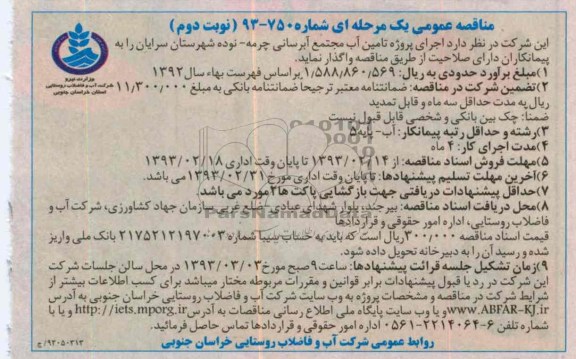 مناقصه عمومی یک مرحله ای شماره ۷۵۰-۹۳ (نوبت دوم)
این شرکت در نظر دارد اجرای پروژه تامین آب مجتمع آبرسانی چرمه- نوده شهرستان سرایان را به
پیمانکاران دارای صلاحیت از طریق مناقصه واگذار نماید.
۱)مبلغ برآورد حدودی به ریال: ۱/۵۸۸/۸۶۰/۵۶۹ براساس فهرست بهاء سال ۱۳۹۲
۲)تضمین شرکت در مناقصه: ضمانتنامه معتبر ترجیحا ضمانتنامه بانکی به مبلغ ۱۱/۳۰۰/۰۰۰
ریال به مدت حداقل سه ماه و قابل تمدید
ضمنا: چک بین بانکی و شخصی قابل قبول نیست
۳)رشته و حداقل رتبه پیمانکار: آب- پایه ۵
۴)مدت اجرای کار: ۴ ماه
۵)مهلت فروش اسناد مناقصه: از ۱۳۹۳/۰۲/۱۴ تا پایان وقت اداری ۱۳۹۳/۰۲/۱۸
۶)آخرین مهلت تسلیم پیشنهادها: تا پایان وقت اداری مورخ ۱۳۹۳/۰۲/۳۱ می باشد.
۷)حداقل پیشنهادات دریافتی جهت بازگشایی پاکت ها ۲ مورد می باشد.
۸)محل دریافت اسناد مناقصه: بیرجند، بلوار شهدای عبادی- ضلع غربی سازمان جهاد کشاورزی، شرکت آب و
فاضلاب روستایی، اداره امور حقوقی و قراردادها
قیمت اسناد مناقصه ۳۰۰/۰۰۰ ریال است که باید به حساب سیبا شماره ۲۱۷۵۲۱۲۱۹۷۰۰۳ بانک ملی واریز
شده و رسید آن را به دبیرخانه تحویل داده شود.
۹)زمان تشکیل جلسه قرائت پیشنهادها: ساعت ۹ صبح مورخ ۱۳۹۳/۰۳/۰۳ در محل سالن جلسات شرکت
این شرکت در رد یا قبول پیشنهادات برابر قوانین و مقررات مربوطه مختار میباشد برای کسب اطلاعات بیشتر از
شرایط شرکت در مناقصه و مشخصات پروژه به وب سایت شرکت آب و فاضلاب روستایی خراسان جنوبی به آدرس
www.ABFAR-KJ.ir و یا وب سایت پایگاه ملی اطلاع رسانی مناقصات به آدرس http://iets.mporg.ir و یا با
شماره تلفن ۶-۲۲۱۴۰۶۴-۰۵۶۱ اداره امور حقوقی و قراردادها تماس حاصل فرمائید.
روابط عمومی شرکت آب و فاضلاب روستایی خراسان جنوبی
۹۲۰۵۰۳۱۳/ج
وزارت نیرو
شرکت آب و فاضلاب روستایی
استان خراسان جنوبی
ParsNamadData